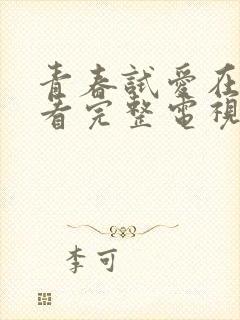 青春試愛在
看完整電視
李可